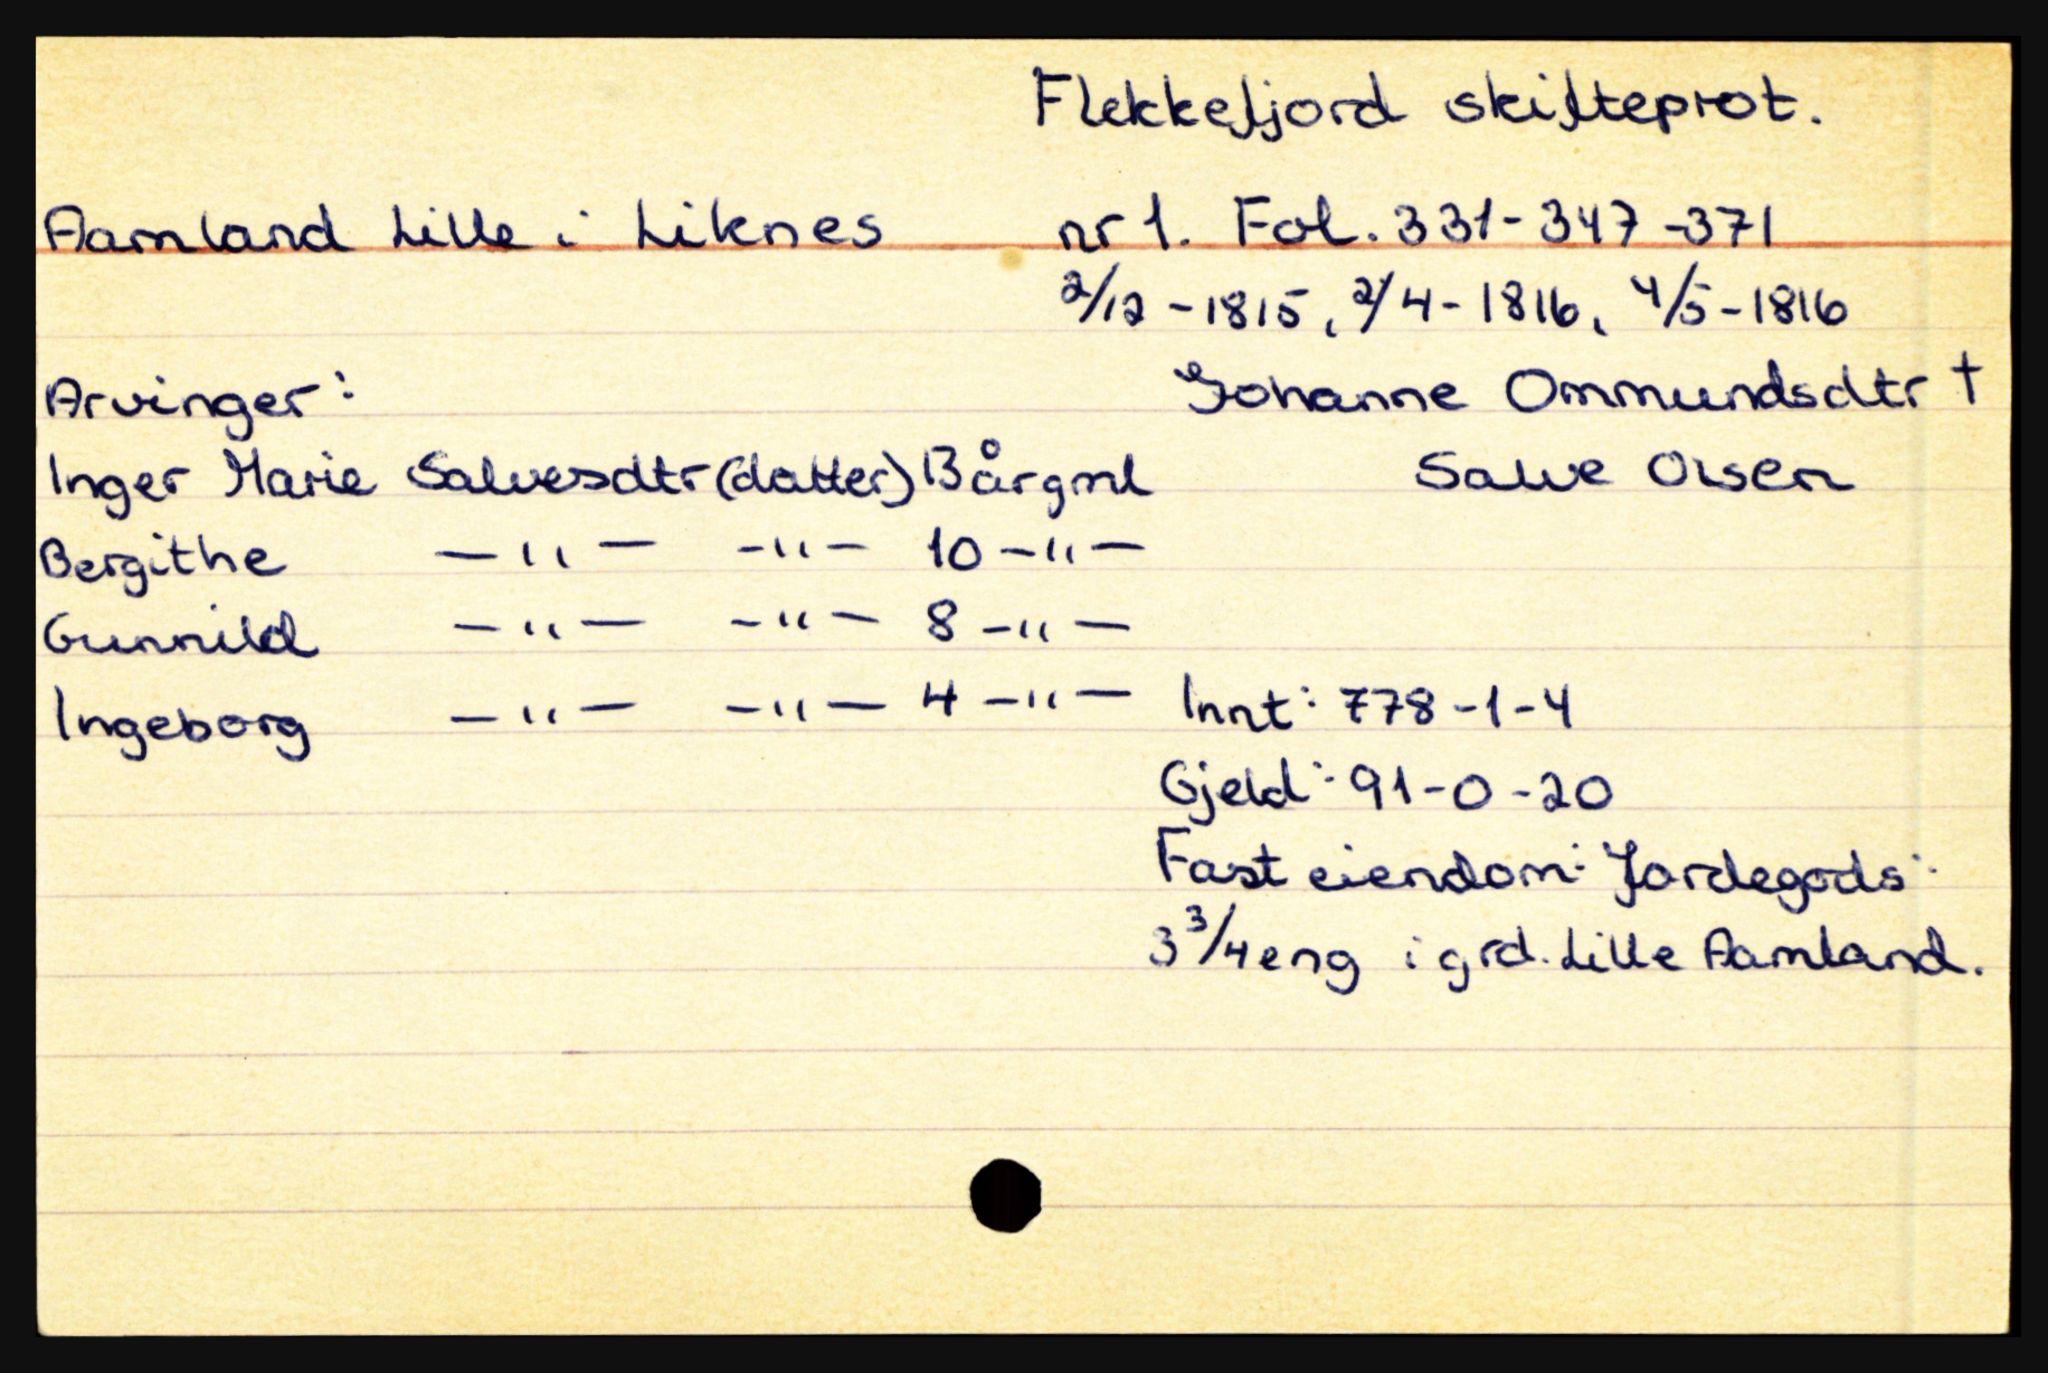 Flekkefjord skifteprot.
Aamland Lille i Liknes nr 1. Fol. 331-347-371
2/12 - 1815, 2/4 - 1816, 4/5 - 1816
Arvinger: Johanne Ommundsdtr †
Inger Marie Salvesdtr (datter) 13 årgml Salve Olsen
Bergithe —"— —"— 10 —"—
Gunnild —"— —"— 8 —"—
Ingeborg —"— —"— 4 —"— Innt: 778-1-4
Gjeld: 91-0-20
Fast eiendom: Jordegods:
3 3/4 eng i grd. Lille Aamland.